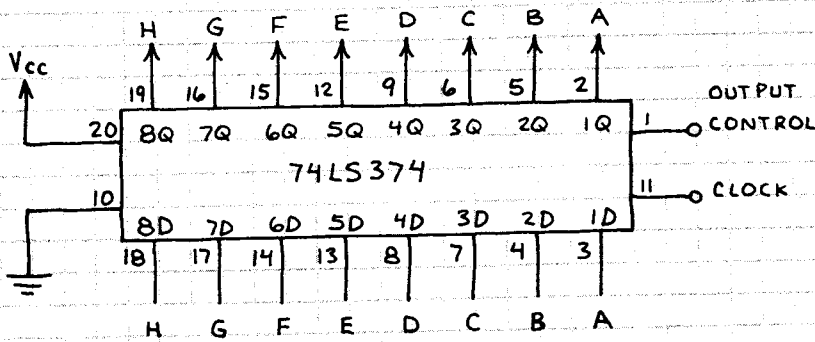 H G F E D C B A
Vcc
19 16 15 12 9 6 5 2
OUTPUT
20 8Q 7Q 6Q 5Q 4Q 3Q 2Q 1Q 1 CONTROL
74LS374
10 11 CLOCK
8D 7D 6D 5D 4D 3D 2D 1D
18 17 14 13 8 7 4 3
H G F E D C B A